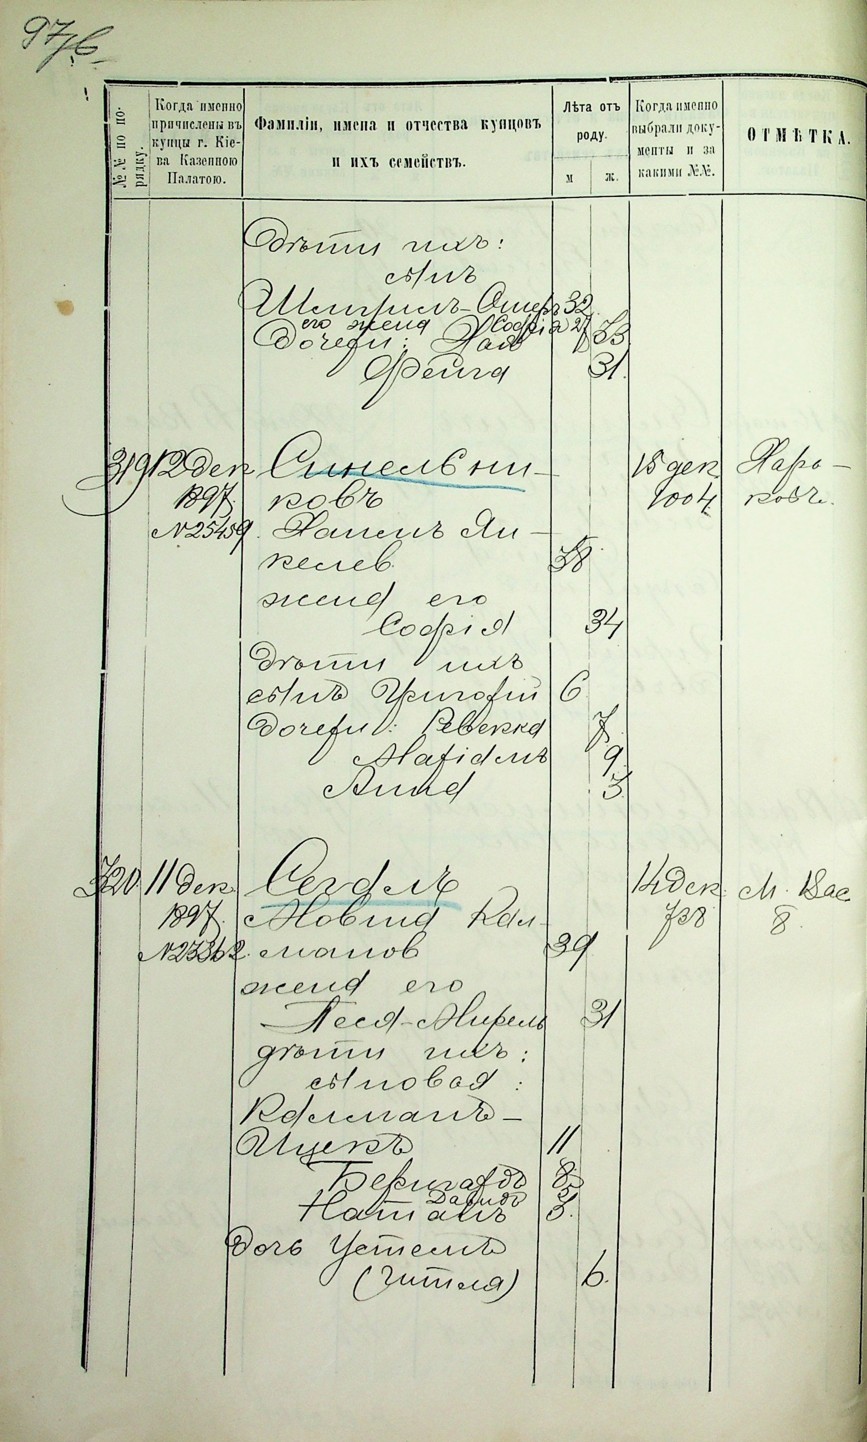 №№ по порядку.
Когда именно причислены въ купцы г. Кіева Казенною Палатою.
Фамиліи, имена и отчества купцовъ и ихъ семействъ.
Лѣта отъ роду.
м ж.
Когда именно выбрали документы и за какими №№.
ОТМѢТКА.
Дѣти ихъ:
сынъ
Шмерилъ-Ошеръ 32
его жена Софія 27
Дочери: Хая 33
Фейга 31.
319 12 дек Синельни- 15 дек Харь-
1897. ковъ 1004 ковъ.
№ 25459. Хаимъ Ян-
келев. 38
жена его
Софія 34
Дѣти ихъ
сынъ Григорій 6
Дочери: Ревекка 7.
Маріамъ 9
Анна 3
320. 11 дек. Сегалъ 14 дек. М. Вас
1897. Мовша Кал- 738 8.
№ 23362. манов 39
жена его
Песя-Мирель 31
дѣти ихъ:
сыновья:
Калманъ-
Ицекъ 11
Бернардъ 8.
Давидъ 5
Натанъ 3.
Дочь Устемъ
(Гитля) 6.